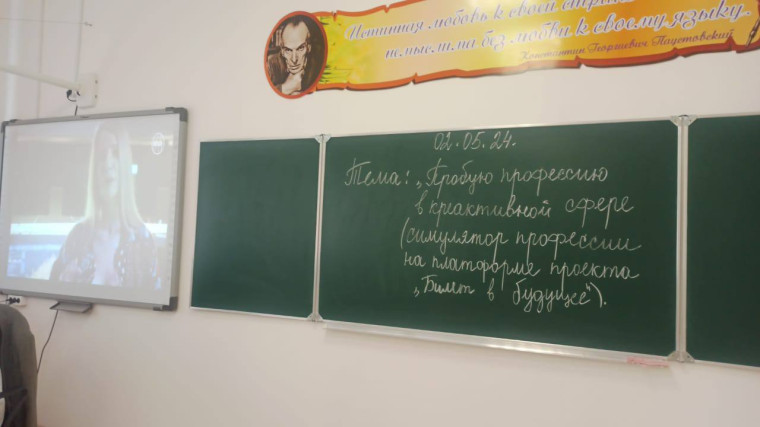 Истинная любовь к своей стра
немыслима без любви к своему языку.
Константин Георгиевич Паустовский
02.05.24.
Тема: „Пробую профессию
в креативной сфере
(симулятор профессии
на платформе проекта
„Билет в будущее").